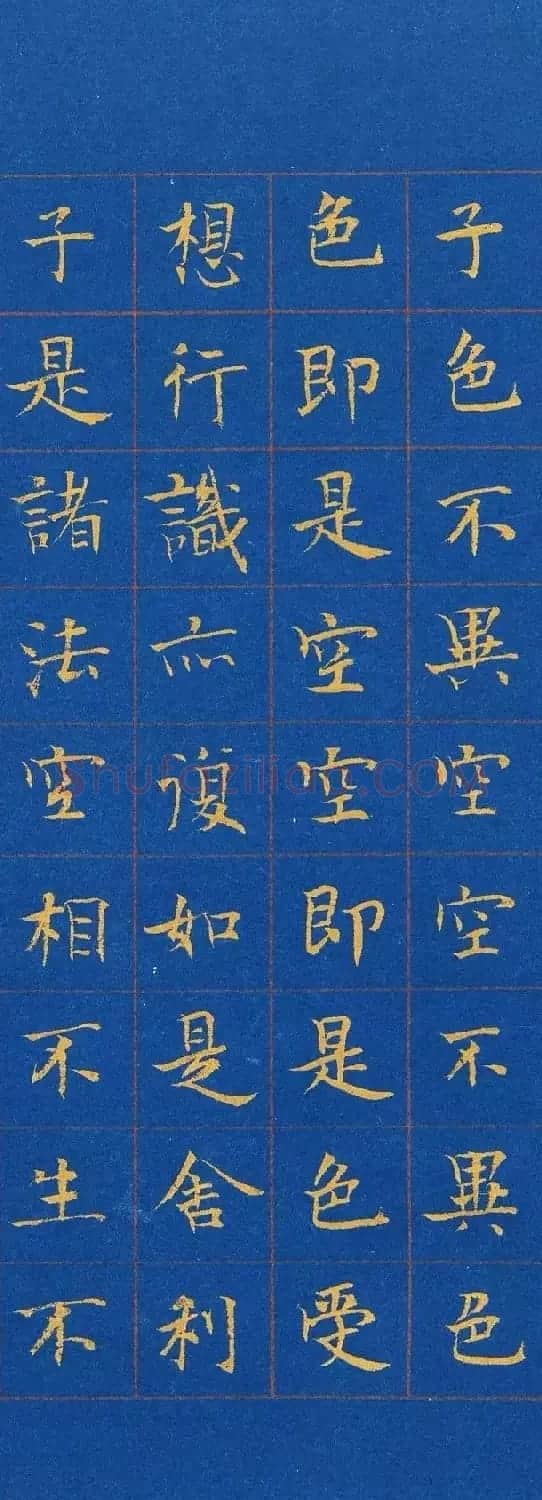 子色不異空空不異色
色即是空空即是色受
想行識亦復如是舍利
子是諸法空相不生不
shufaziliao.com